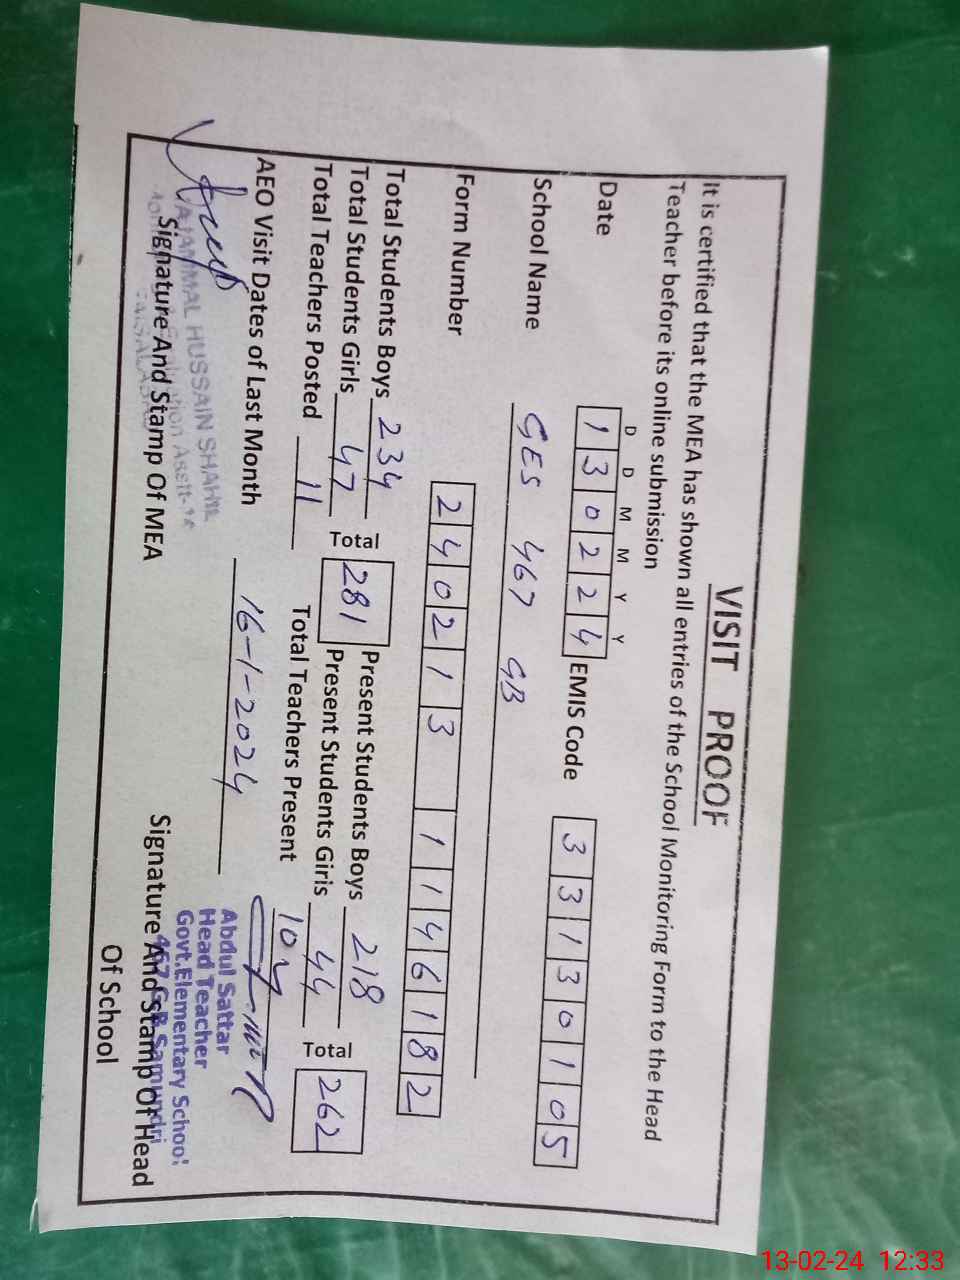 VISIT PROOF
It is certified that the MEA has shown all entries of the School Monitoring Form to the Head
Teacher before its online submission
D D M M Y Y
Date 130224 EMIS Code 33130105
School Name GES 467 GB
Form Number 240213 11146182
Total Students Boys 234 Present Students Boys 218
Total Students Girls 47 Total 281 Present Students Girls 44 Total 262
Total Teachers Posted 11 Total Teachers Present 10
AEO Visit Dates of Last Month 16-1-2024
HUSSAIN SHAH
Signature And Stamp Of MEA
Abdul Sattar
Head Teacher
Govt.Elementary School
467 G.B Samundri
Signature And Stamp Of Head
Of School
13-02-24 12:33